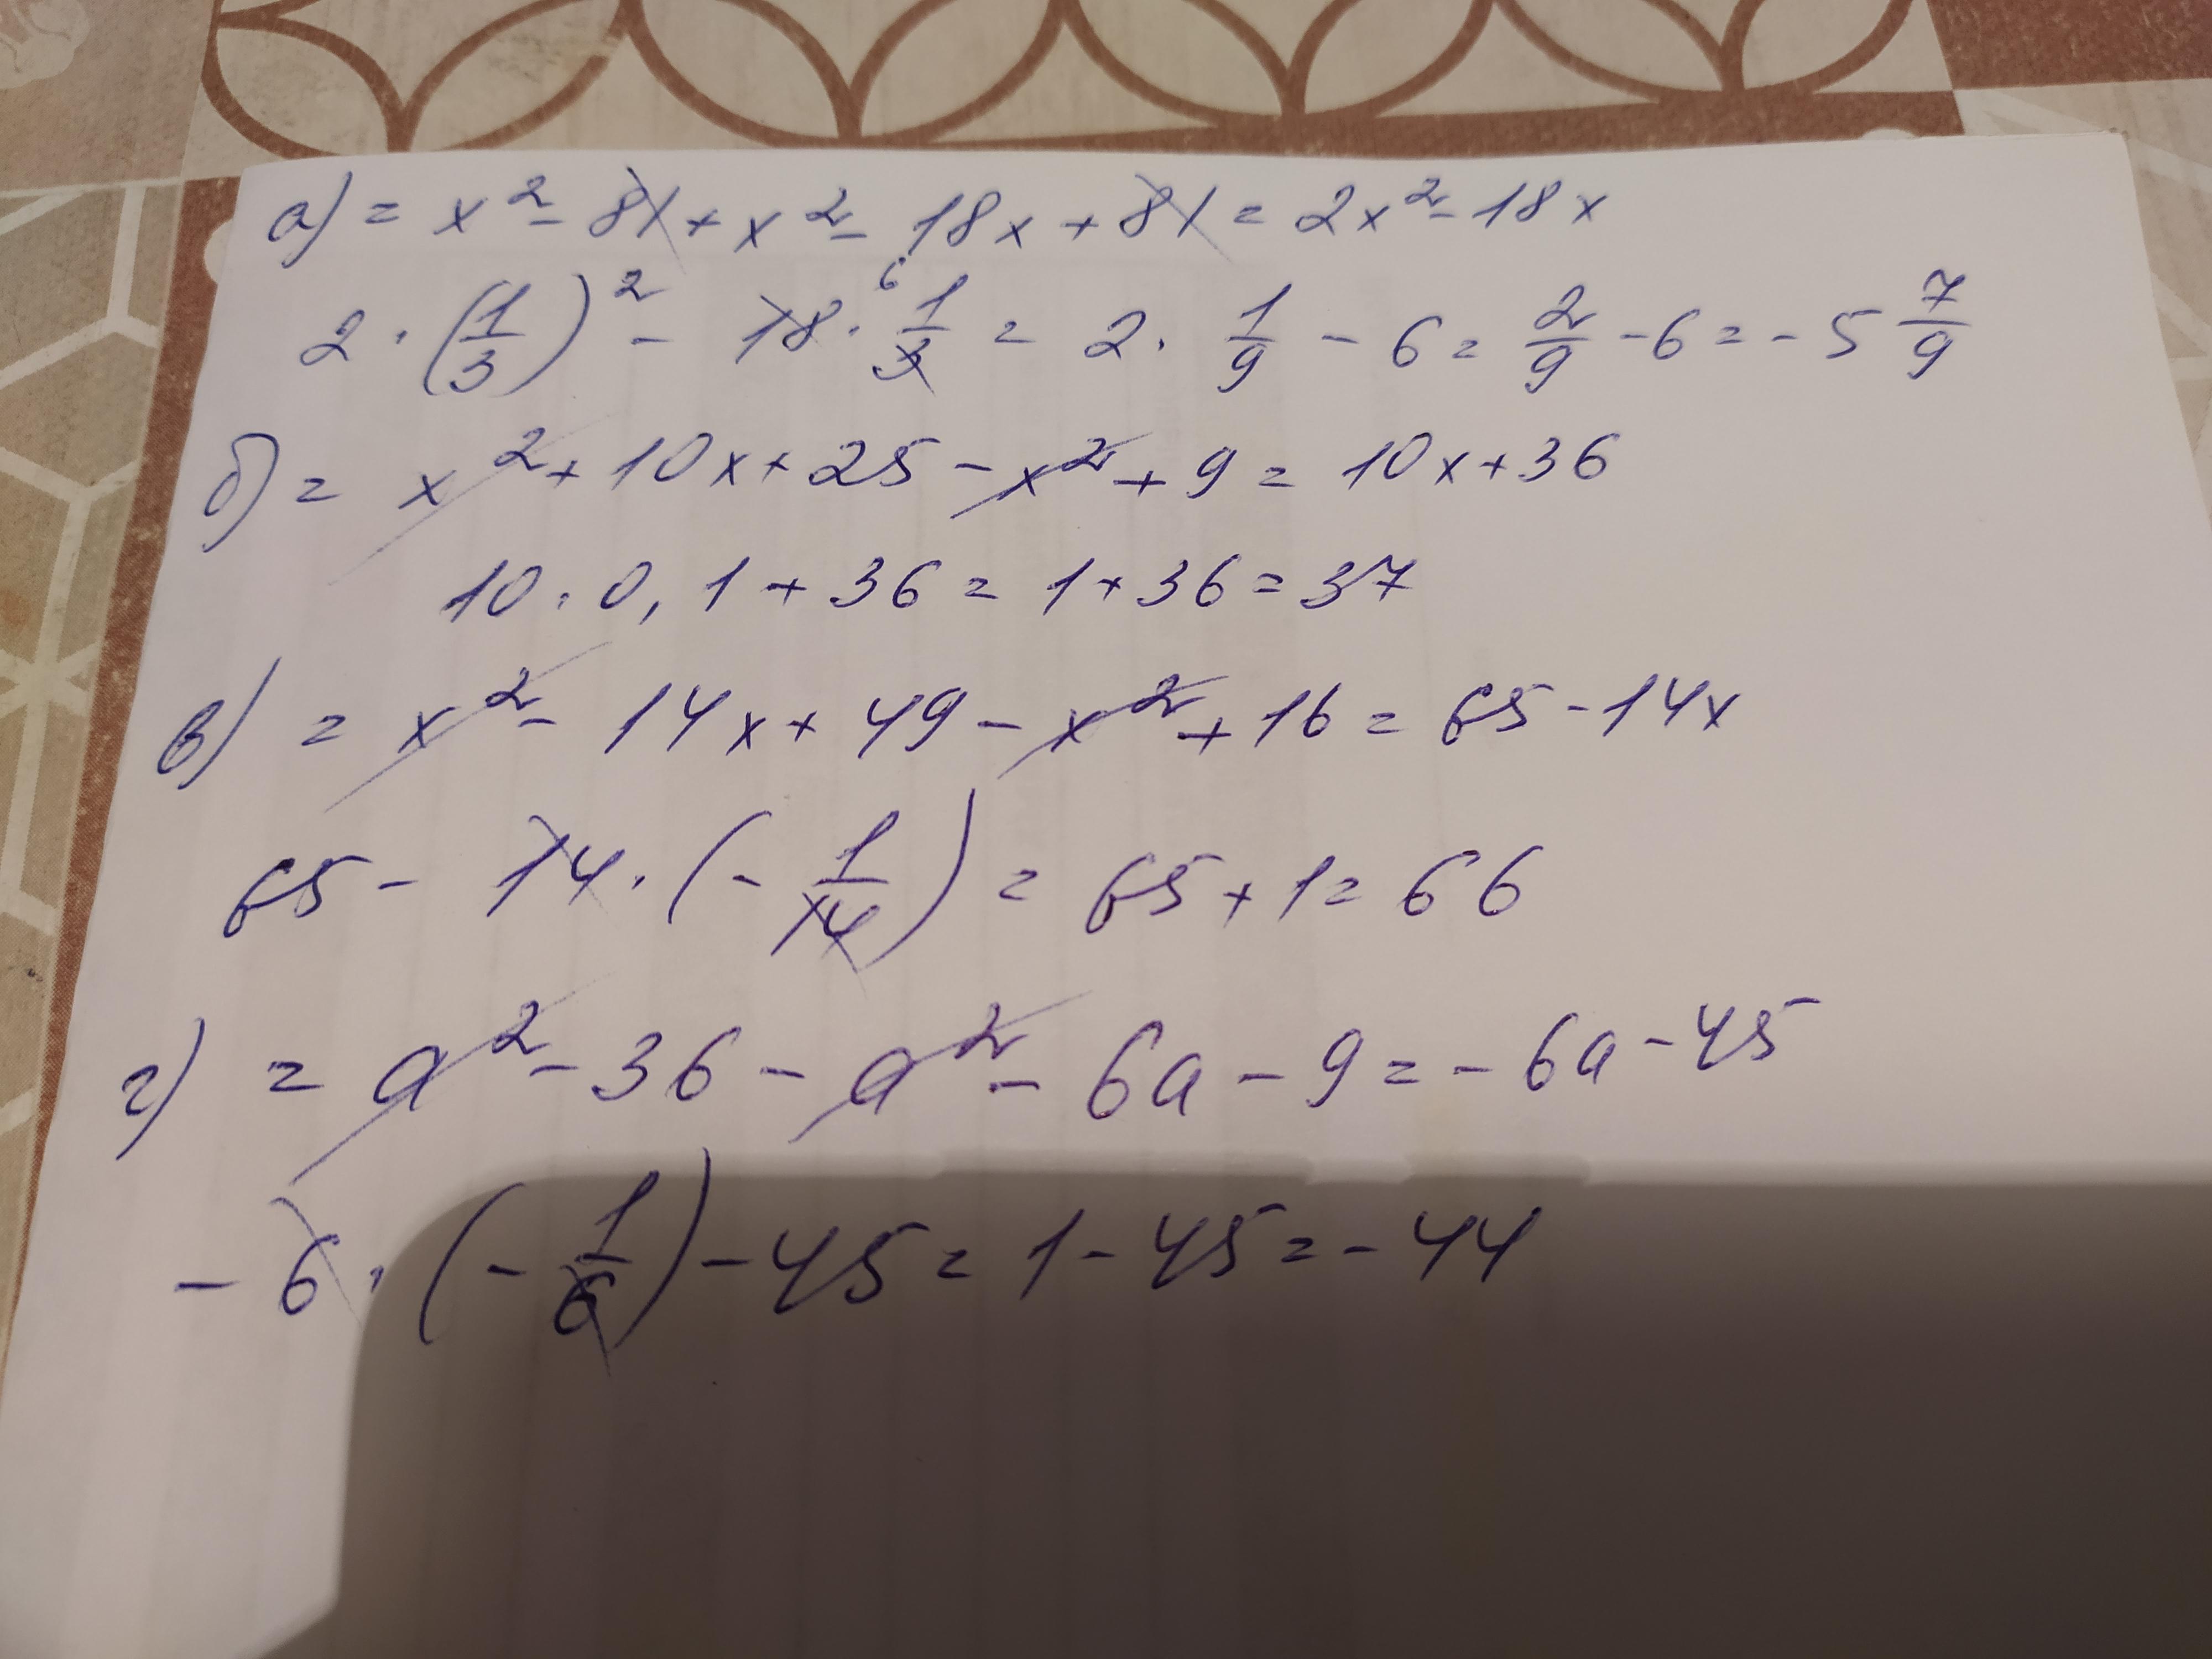 а) = x² - 81 + x² - 18x + 81 = 2x² - 18x
2 · (1/3)² - 18 · 1/3 = 2 · 1/9 - 6 = 2/9 - 6 = - 5 7/9
6
б) = x² + 10x + 25 - x² + 9 = 10x + 36
10 · 0,1 + 36 = 1 + 36 = 37
в) = x² - 14x + 49 - x² + 16 = 65 - 14x
65 - 14 · (- 1/14) = 65 + 1 = 66
г) = a² - 36 - a² - 6a - 9 = - 6a - 45
- 6 · (- 1/6) - 45 = 1 - 45 = - 44